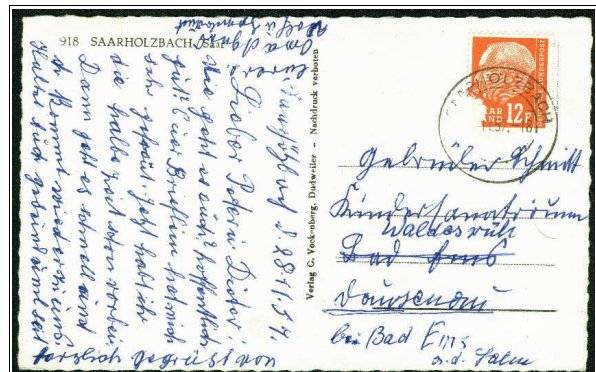 918 SAARHOLZBACH/Saar
Saarhölzbach d 28.11.57.
Lieber Peter u Dieter.
Wie geht es euch? hoffentlich
gut! Euer Brieflein hat mich
sehr gefreut. Jetzt habt ihr
die halbe Zeit schon vorbei
Dann geht es schnell und
ihr kommt wieder zu uns
Haltet euch gesund und seit
herzlich gegrüsst von
eurer
Oma
Verlag C. Veckenberg, Dudweiler - Nachdruck verboten
BUNDESPOST
SAAR
LAND 12F
SAARHÖLZBACH
Gebrüder Schmitt
Kindersanatorium
Waldesruh
Bad Ems
Dausenau
bei Bad Ems
a.d. Lahn